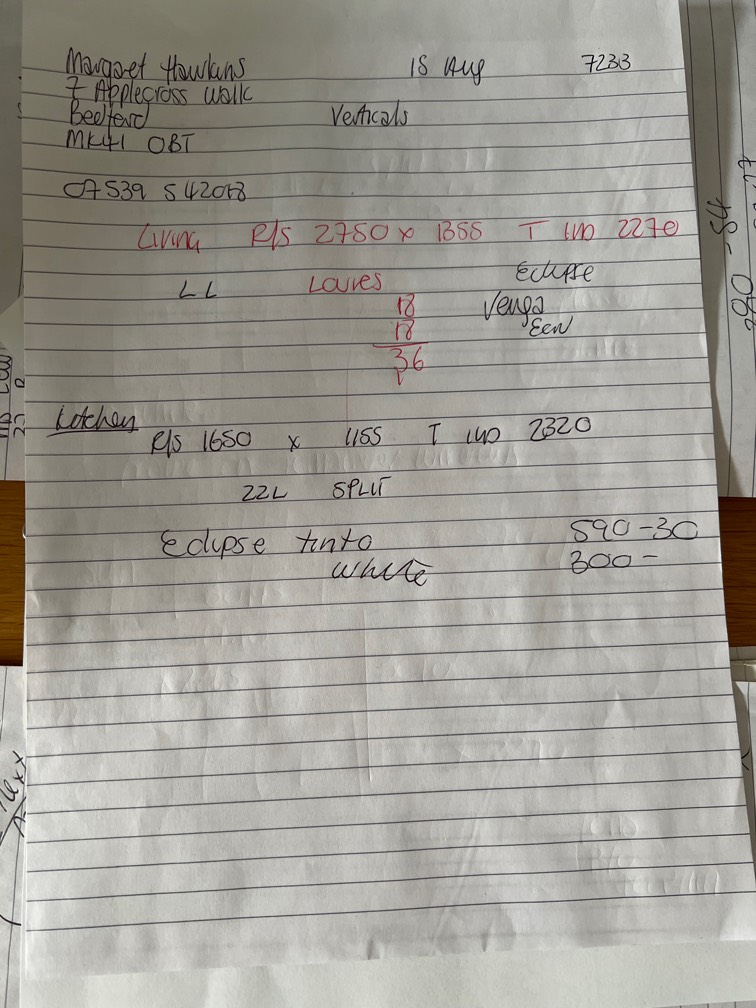 Margaret Hawkins 18 Aug 7233
7 Applecross Walk
Bedford Verticals
MK41 0BT
07539 542018
Living R/S 2750 x 1355 T
2270
LL Louvres Eclipse
18 Venga
18 Ecru
36
Kitchen
R/S 1650 x 1155 T
2320
22L SPLIT
Eclipse tinto 590-30
White 300-